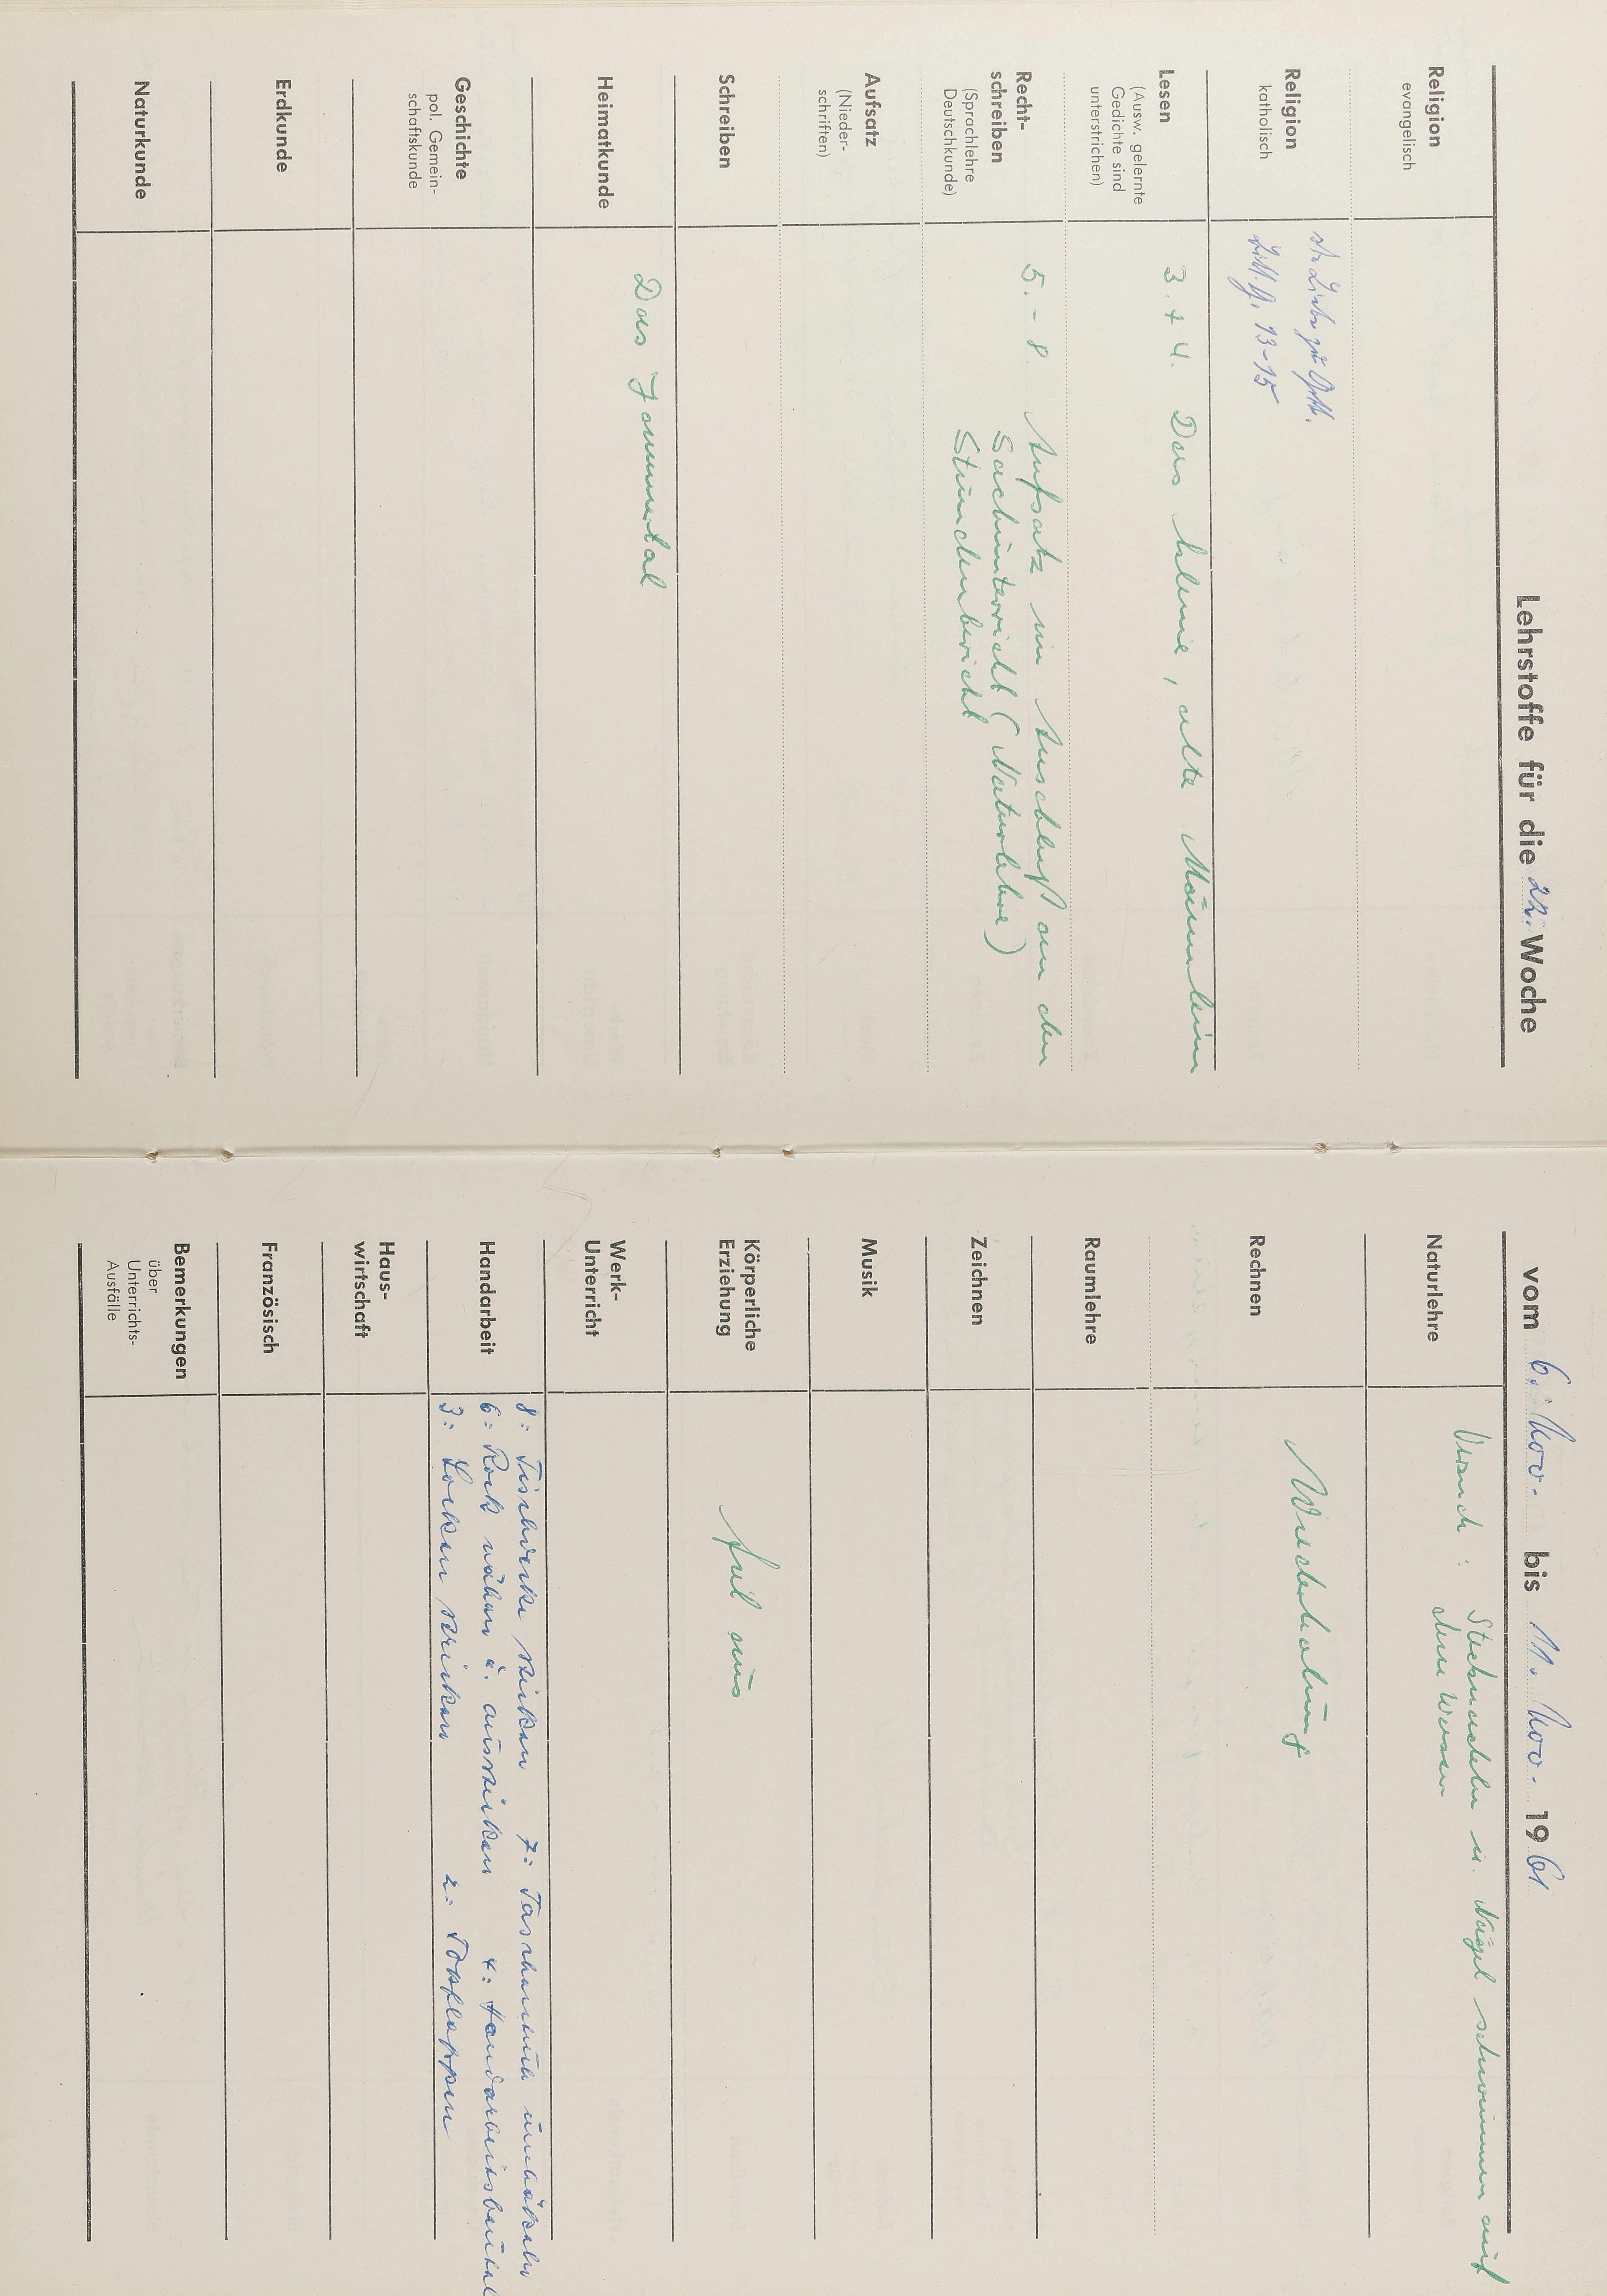 Lehrstoffe für die 22. Woche
Religion
evangelisch
Religion
katholisch
13-15
Lesen
(Ausw. gelernte
Gedichte sind
unterstrichen)
3. + 4. Das kleine, alte Männlein
Recht-
schreiben
(Sprachlehre
Deutschkunde)
5. - 8. Aufsatz im Anschluß an den
Sachunterricht (Naturlehre)
Stundenbericht
Aufsatz
(Nieder-
schriften)
Schreiben
Heimatkunde
Das
Geschichte
pol. Gemein-
schaftskunde
Erdkunde
Naturkunde
vom 6. Nov. bis 11. Nov. 1961
Naturlehre
Versuch: Stecknadeln u. Nägel schwimmen auf
dem Wasser
Rechnen
Wiederholung
Raumlehre
Zeichnen
Musik
Körperliche
Erziehung
fiel aus
Werk-
Unterricht
Handarbeit
8: Tischdecke sticken 7: Taschentuch umhäkeln
6: Rock nähen u. aussticken 4: Handarbeitsbeutel
3: Socken stricken 2: Topflappen
Haus-
wirtschaft
Französisch
Bemerkungen
über
Unterrichts-
Ausfälle